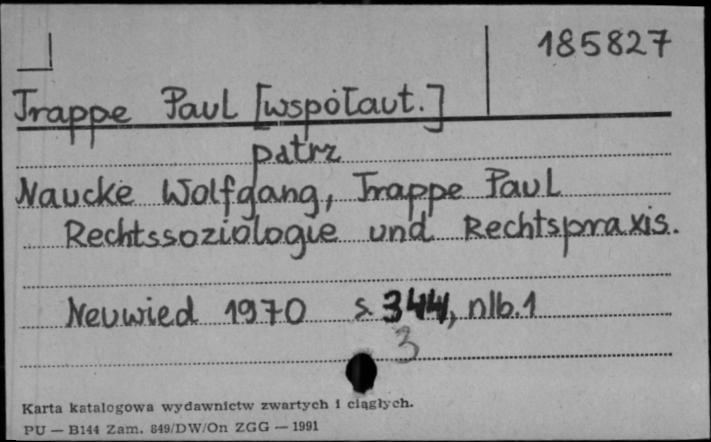 185827
Trappe Paul [współaut.]
patrz
Naucke Wolfgang, Trappe Paul
Rechtssoziologie und Rechtspraxis.
Neuwied 1970 s. 344, nlb. 1
3
Karta katalogowa wydawnictw zwartych i ciągłych.
PU — B144 Zam. 849/DW/On ZGG — 1991